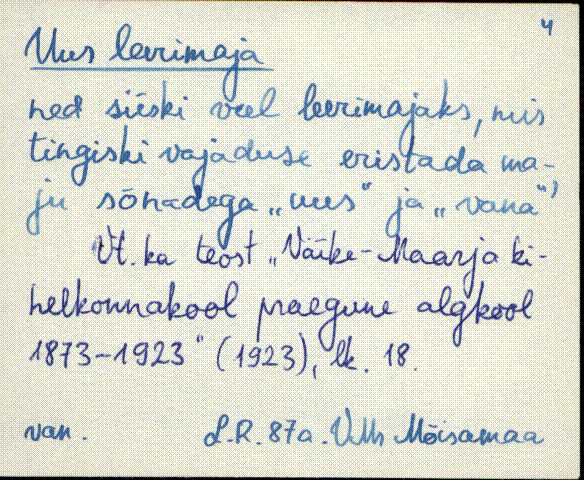 4
Uus leerimaja
ned siiski veel leerimajaks, mis
tingiski vajaduse eristada ma-
ju sõnadega „uus" ja „vana"
Vt. ka teost „Väike-Maarja ki-
helkonnakool praegune algkool
1873-1923" (1923), lk. 18.
van. L.R. 87a. Mõisamaa